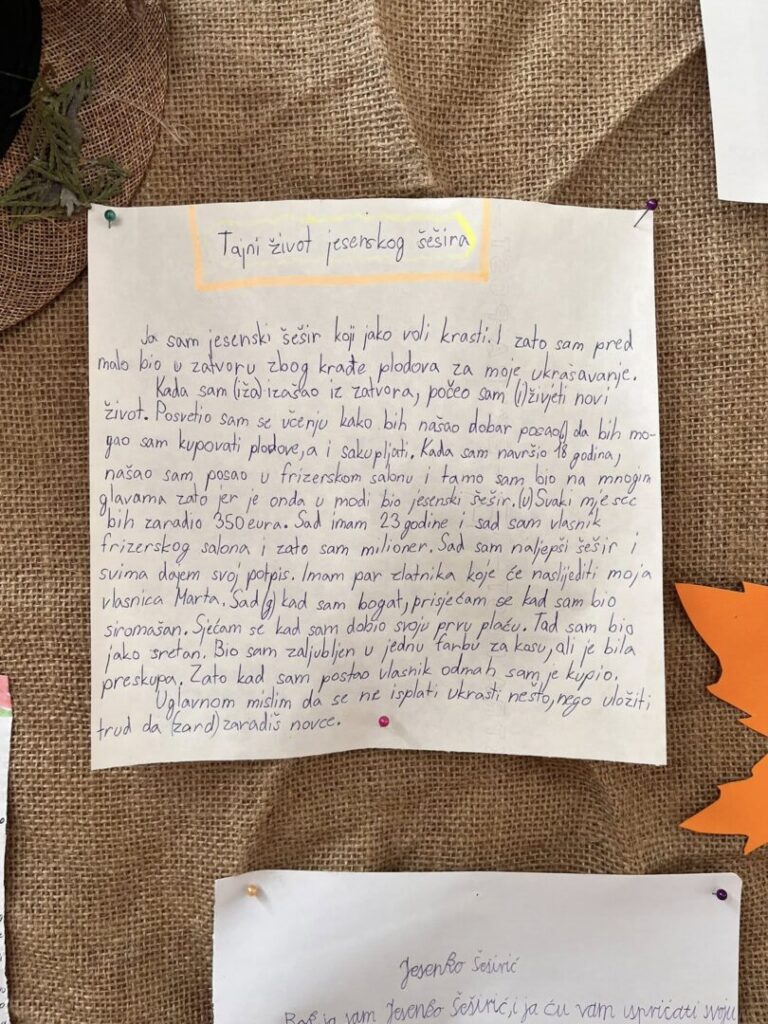 Tajni život jesenskog šešira
Ja sam jesenski šešir koji jako voli krasti. I zato sam pred
malo bio u zatvoru zbog krađe plodova za moje ukrašavanje.
Kada sam (iža) izašao iz zatvora, počeo sam (i) živjeti novi
život. Posvetio sam se učenju kako bih našao dobar posao(,) da bih mo-
gao sam kupovati plodove, a i sakupljati. Kada sam navršio 18 godina,
našao sam posao u frizerskom salonu i tamo sam bio na mnogim
glavama zato jer je onda u modi bio jesenski šešir. (U) Svaki mjesec
bih zaradio 350 eura. Sad imam 23 godine i sad sam vlasnik
frizerskog salona i zato sam milioner. Sad sam naljepši šešir i
svima dajem svoj potpis. Imam par zlatnika koje će naslijediti moja
vlasnica Marta. Sad (g) kad sam bogat, prisjećam se kad sam bio
siromašan. Sjećam se kad sam dobio svoju prvu plaću. Tad sam bio
jako sretan. Bio sam zaljubljen u jednu farbu za kosu, ali je bila
preskupa. Zato kad sam postao vlasnik odmah sam je kupio.
Uglavnom mislim da se ne isplati ukrasti nešto, nego uložiti
trud da (zard) zaradiš novce.
Jesenko Šeširić
Baš ja vam Jesenko Šeširić, i ja ću vam ispričati svoju